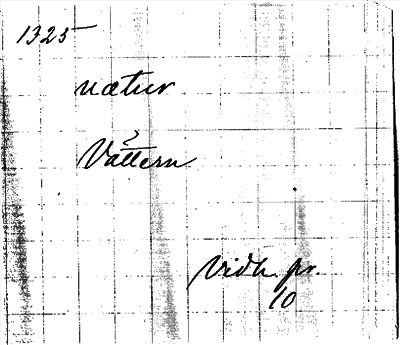 1325
nætur
?
Vättern
Vidh. pr.
10